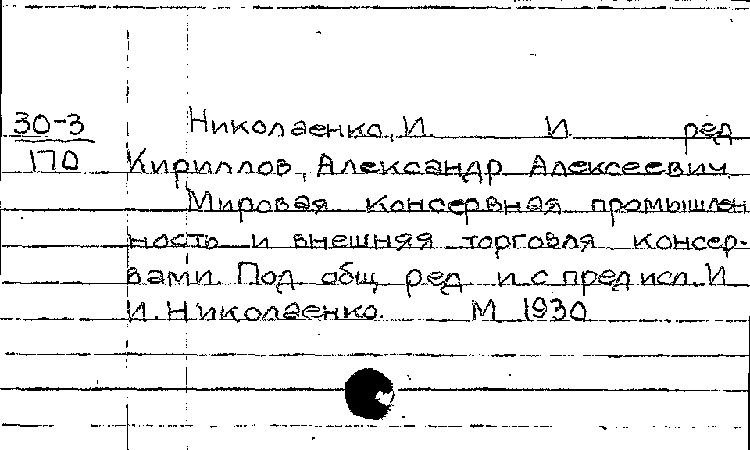 30-3 Николаенко, И. И ред
170 Кириллов, Александр Алексеевич
Мировая консервная промышлен
ность и внешняя торговля консер-
вами. Под общ ред и с предисл. И
И. Николаенко. М 1930